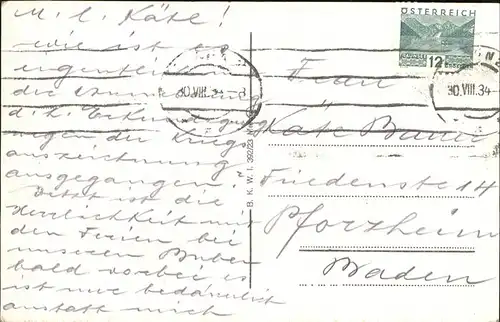 M. l. Käte!
Wie ist es
eigentlich
die
d. h. Erkundigung
wegen der Kriegs
auszeichnung
ausgegangen?
Jetzt ist die
Herrlichkeit mit
den Ferien bei
unseren Buben
bald vorbei es
ist nur bedauerlich
anstatt mich
B. K. W. I. 392/23
ÖSTERREICH
12
30.VIII.34
30.VIII.34
Frau
Käte Bauer
Friedenstr 14
Pforzheim
Baden